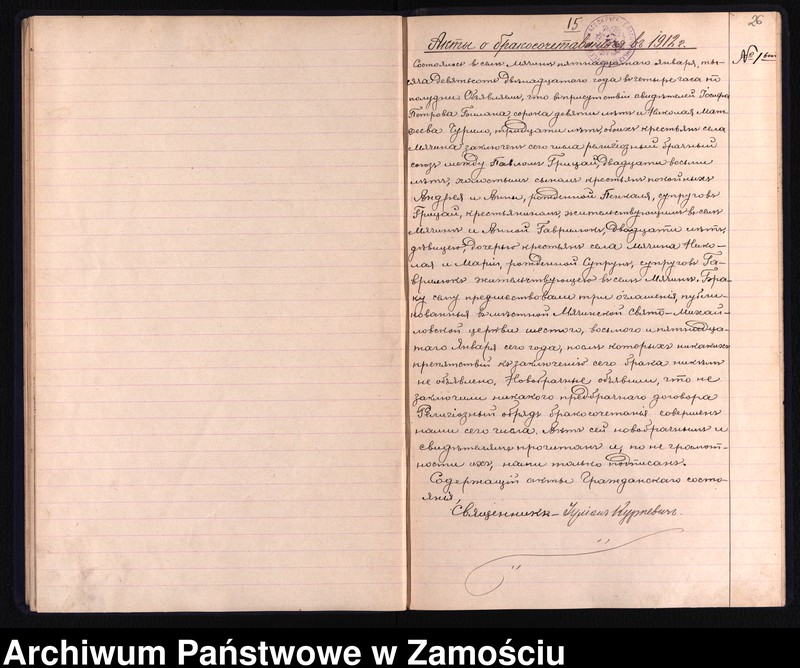 15
26
Акты о бракосочетанiях въ 1912 г.
№ 1
Состоялось въ селѣ Мячинѣ пятнадцатаго Января, ты-
сяча девятьсотъ двѣнадцатаго года въ четыре часа по
полудни. Объявляемъ, что въ присутствiи свидѣтелей Iосифа
Петрова сорока девяти лѣтъ и Николая Мат-
ѳеева Чурило, тридцати лѣтъ, обоихъ крестьянъ села
Мячина заключенъ сего числа религiозный брачный
союзъ между Павломъ Грицай, двадцати восьми
лѣтъ, холостымъ сыномъ крестьянъ покойныхъ
Андрея и Анны, рожденной Пенкаля, супруговъ
Грицай, крестьяниномъ, жительствующимъ въ селѣ
Мячинѣ и Анной Гаврилюкъ, двадцати лѣтъ,
дѣвицею, дочерью крестьянъ села Мячина Нико-
лая и Марiи, рожденной Супрунъ, супруговъ Га-
врилюкъ жительствующею въ селѣ Мячинѣ. Бра-
ку сему предшествовали три оглашенiя, публи-
кованныя въ мѣстной Мячинской Свято-Михай-
ловской церкви шестого, восьмого и пятнадца-
таго Января сего года, послѣ которыхъ никакихъ
препятствiй къ заключенiю сего брака никѣмъ
не объявлено. Новобрачные объявили, что не
заключили никакого предбрачнаго договора
Религiозный обрядъ бракосочетанiя совершенъ
нами сего числа. Актъ сей новобрачнымъ и
свидѣтелямъ прочитанъ и, по не грамот-
ности ихъ, нами только подписанъ.
Содержащiй акты Гражданскаго состо-
янiя,
Священникъ – Iулiанъ Курпевичъ.
Archiwum Państwowe w Zamościu